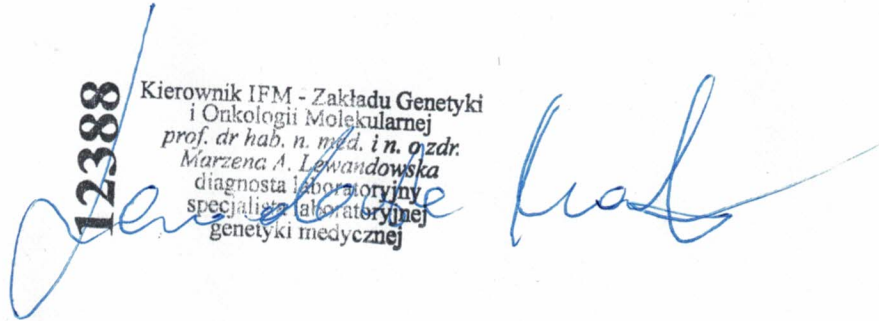 12388
Kierownik IFM - Zakładu Genetyki
i Onkologii Molekularnej
prof. dr hab. n. med. i n. o zdr.
Marzena A. Lewandowska
diagnosta laboratoryjny
specjalista laboratoryjnej
genetyki medycznej